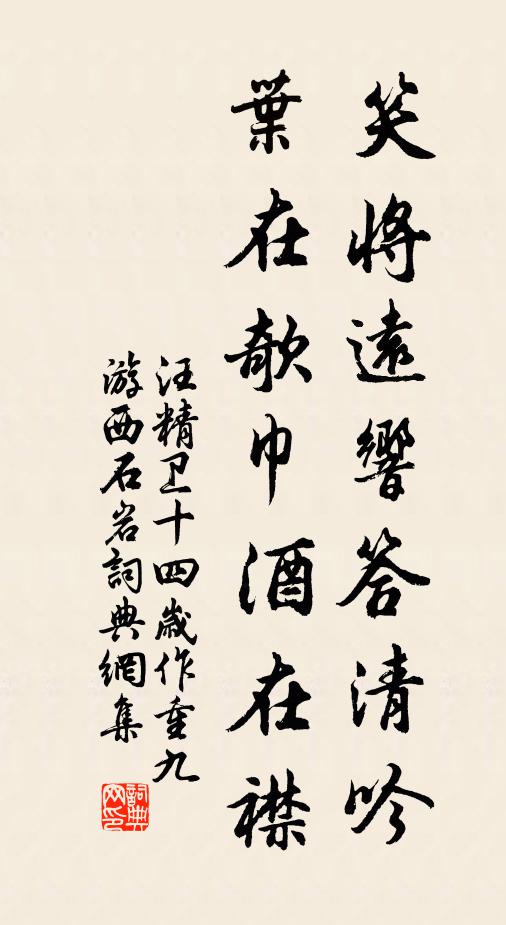 笑將遠響答清吟
葉在欹巾酒在襟
汪精卫十四歲作重九
游西石岩詞典網集
詞典网印